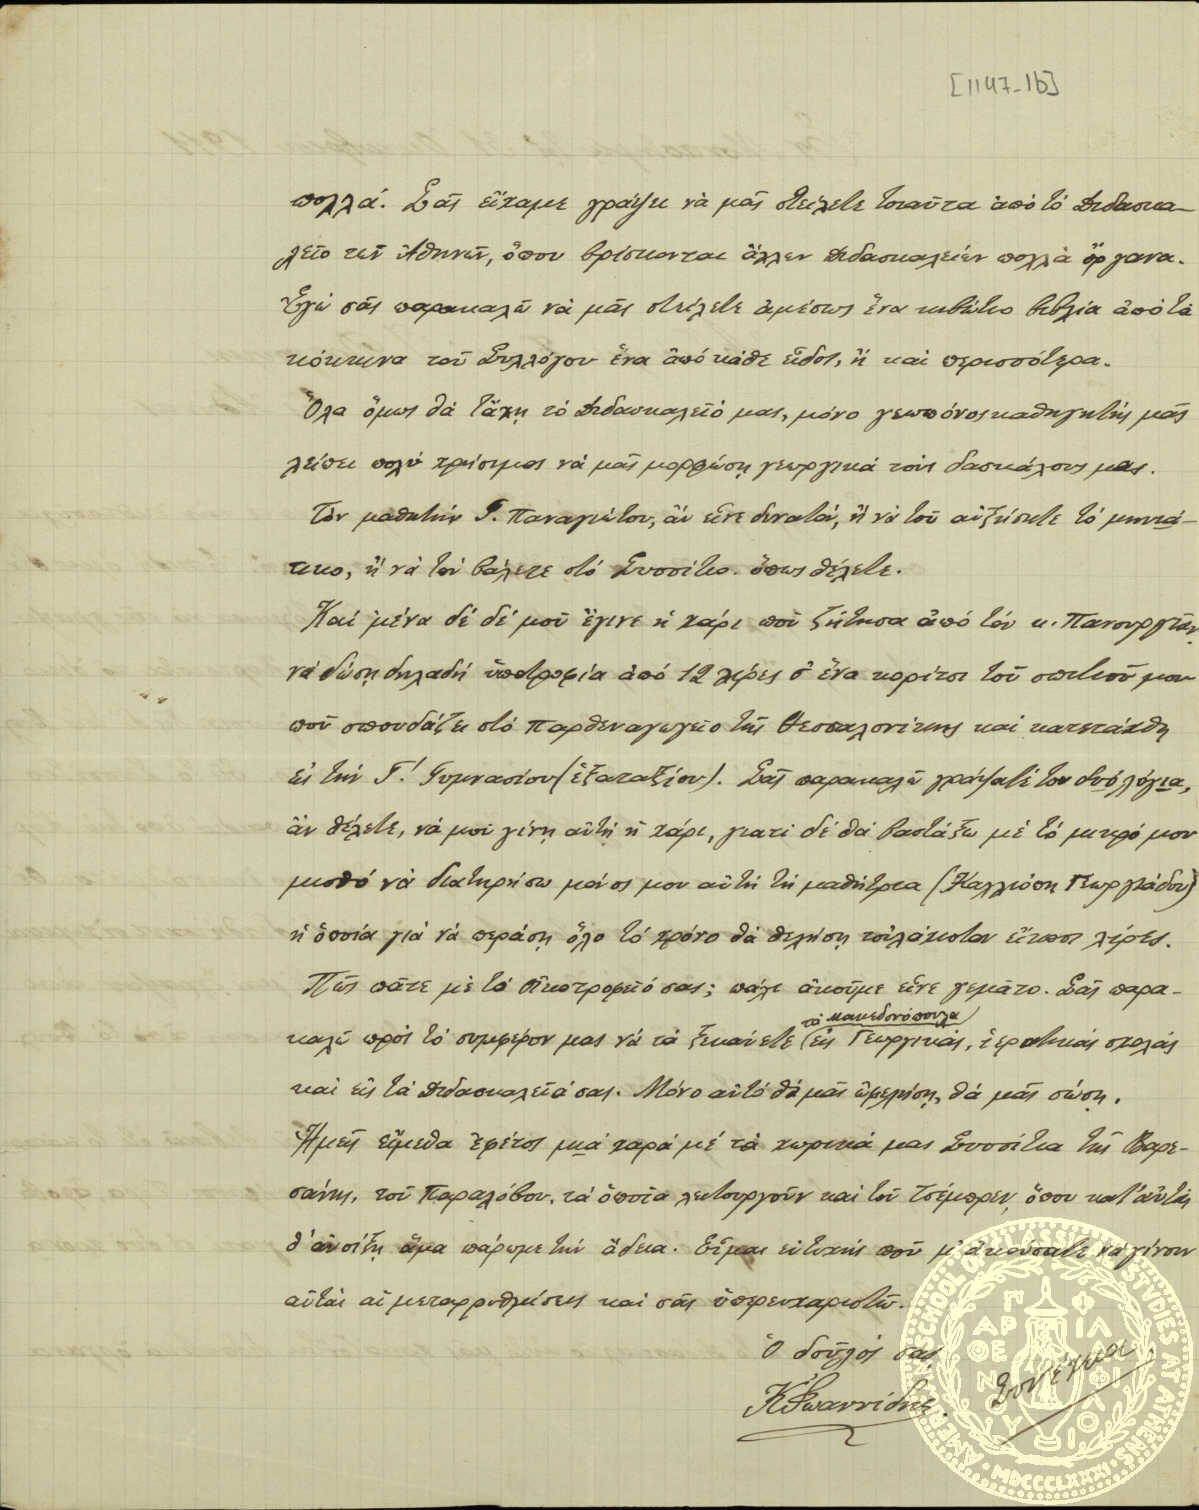 [1147-1b]
πολλά. Σᾶς εἴχαμε γράψει νὰ μᾶς στείλετε τοιαῦτα ἀπὸ τὸ Διδασκα-
λεῖο τῶν Ἀθηνῶν, ὅπου βρίσκονται ἄλλων Διδασκαλείων πολλὰ ὄργανα.
Ἐγὼ σᾶς παρακαλῶ νὰ μᾶς στείλετε ἀμέσως ἕνα κιβώτιο βιβλία ἀπὸ τὰ
κόκκινα τοῦ Συλλόγου ἕνα ἀπὸ κάθε εἶδος, ἢ καὶ περισσότερα.
Ὅλα ὅμως θὰ τἄχῃ τὸ Διδασκαλεῖό μας, μόνο γεωπόνος καθηγητὴς μᾶς
λείπει πολὺ χρήσιμος νὰ μᾶς μορφώσῃ γεωργικὰ τοὺς δασκάλους μας.
Τὸν μαθητὴν Γ. Παναγιώτου, ἂν εἶνε δυνατό, ἢ νὰ τοῦ αὐξήσετε τὸ μηνιά-
τικο, ἢ νὰ τὸν βάλετε στὸ Συσσίτιο. ὅπως θέλετε.
Καὶ μένα δὲ δὲ μοῦ ἔγινε ἡ χάρι ποῦ ζήτησα ἀπὸ τὸν κ. Πανουργιᾶν,
νὰ δώσῃ δηλαδὴ ὑποτροφία ἀπὸ 12 λίρες σ' ἕνα κορίτσι τοῦ σπιτιοῦ μου
ποῦ σπουδάζει στὸ Παρθεναγωγεῖο τῆς Θεσσαλονίκης καὶ κατετάχθη
εἰς τὴν Γ.! Γυμνασίου (ἑξαταξίου). Σᾶς παρακαλῶ γράψατέ του δυὸ λόγια,
ἂν θέλετε, νὰ μοῦ γίνῃ αὐτὴ ἡ χάρι, γιατὶ δὲ θὰ βαστάξω μὲ τὸ μικρό μου
μισθὸ νὰ διατηρήσω μόνος μου αὐτὴ τὴ μαθήτρια (Καλλιόπη Γεωργιάδου)
ἡ ὁποία γιὰ νὰ περάσῃ ὅλο τὸ χρόνο θὰ θελήσῃ τοὐλάχιστον εἴκοσι λίρες.
Πῶς πᾶτε μὲ τὸ Οἰκοτροφεῖό σας; πάλι ἀκοῦμε εἶνε γεμᾶτο. Σᾶς παρα-
τὰ Μακεδονόπουλα
καλῶ πρὸς τὸ συμφέρον μας νὰ τὰ ξεκάνετε (εἰς Γεωργικάς, ἱερατικὰς σχολὰς
καὶ εἰς τὰ Διδασκαλεῖά σας. Μόνο αὐτὸ θὰ μᾶς ὠφελήσῃ, θὰ μᾶς σώσῃ.
Ἡμεῖς εἴμεθα ἐφέτος μιὰ χαρὰ μὲ τὰ χωρικά μας Συσσίτια τῆς Βαρε-
σάνης, τοῦ Παραλόβου, τὰ ὁποῖα λειτουργοῦν καὶ τοῦ Τσέμπρεν, ὅπου κατ' αὐτὰς
θ' ἀνοίξῃ ἅμα πάρωμε τὴν ἄδεια. Εἶμαι εὐτυχὴς ποῦ μ' ἀκούσατε νὰ γίνουν
αὐταὶ αἱ μεταρρυθμίσεις καὶ σᾶς ὑπερευχαριστῶ.
Ὁ δοῦλός σας
Κ Ἰωαννίδης.
AMERICAN SCHOOL OF CLASSICAL STUDIES AT ATHENS
MDCCCLXXXI